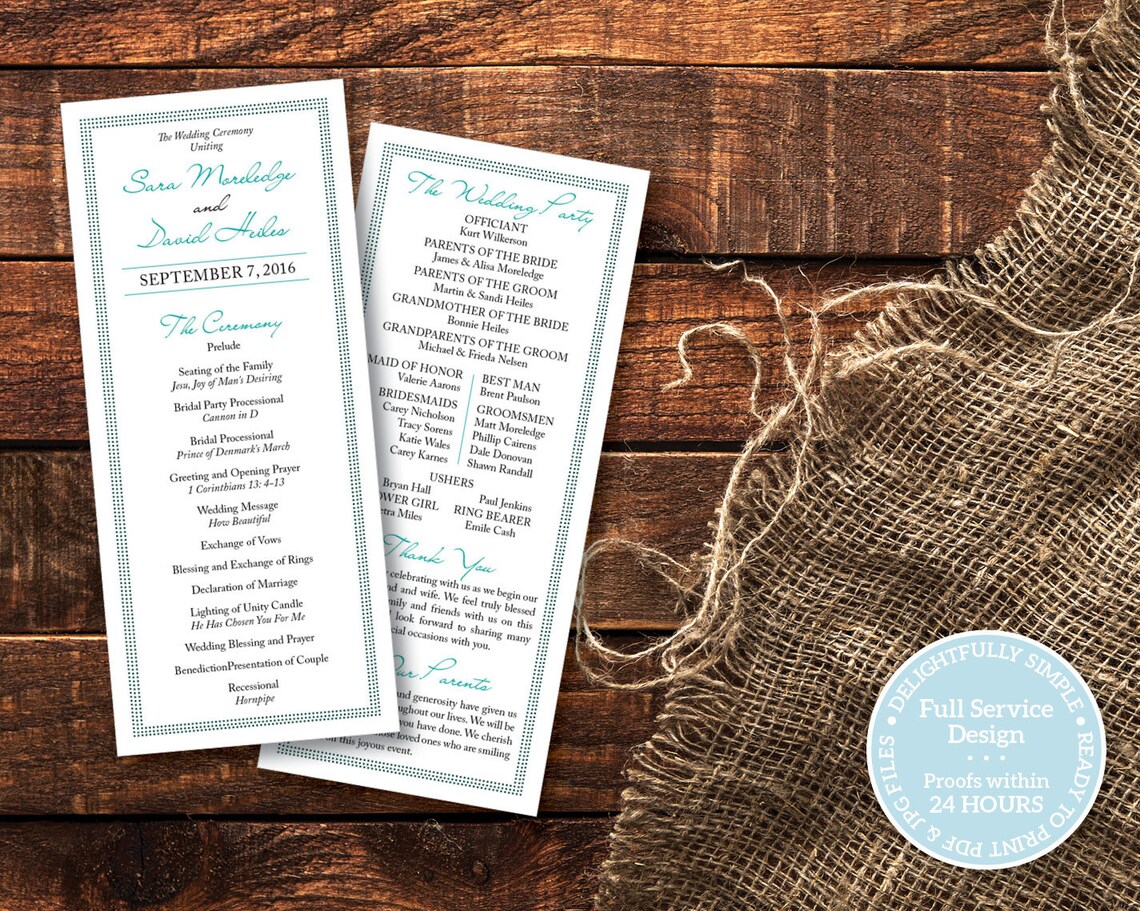 The Wedding Ceremony
Uniting
Sara Moreledge
and
David Heiles
SEPTEMBER 7, 2016
The Ceremony
Prelude
Seating of the Family
Jesu, Joy of Man's Desiring
Bridal Party Processional
Cannon in D
Bridal Processional
Prince of Denmark's March
Greeting and Opening Prayer
1 Corinthians 13: 4-13
Wedding Message
How Beautiful
Exchange of Vows
Blessing and Exchange of Rings
Declaration of Marriage
Lighting of Unity Candle
He Has Chosen You For Me
Wedding Blessing and Prayer
BenedictionPresentation of Couple
Recessional
Hornpipe
The Wedding Party
OFFICIANT
Kurt Wilkerson
PARENTS OF THE BRIDE
James & Alisa Moreledge
PARENTS OF THE GROOM
Martin & Sandi Heiles
GRANDMOTHER OF THE BRIDE
Bonnie Heiles
GRANDPARENTS OF THE GROOM
Michael & Frieda Nelsen
MAID OF HONOR
Valerie Aarons
BRIDESMAIDS
Carey Nicholson
Tracy Sorens
Katie Wales
Carey Karnes
BEST MAN
Brent Paulson
GROOMSMEN
Matt Moreledge
Phillip Cairens
Dale Donovan
Shawn Randall
USHERS
Bryan Hall Paul Jenkins
GIRL RING BEARER
Miles Emile Cash
Thank You
celebrating with us as we begin our
and wife. We feel truly blessed
family and friends with us on this
look forward to sharing many
occasions with you.
Our Parents
and generosity have given us
throughout our lives. We will be
you have done. We cherish
those loved ones who are smiling
on this joyous event.
DELIGHTFULLY SIMPLE
Full Service
Design
Proofs within
24 HOURS
READY TO PRINT PDF & JPG FILES